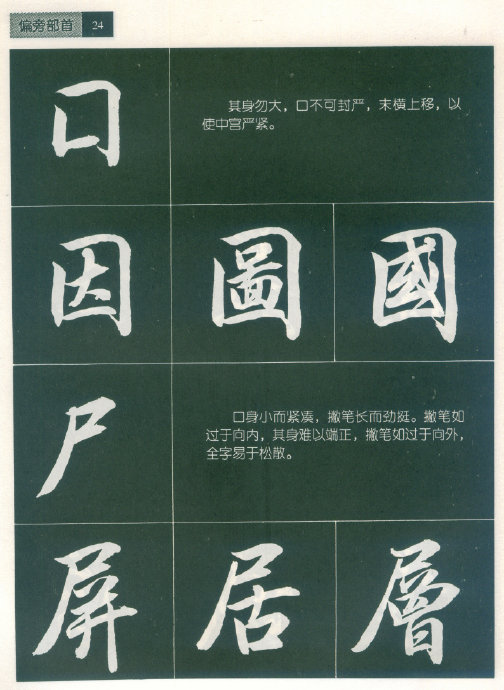 偏旁部首 24
口
其身勿大，口不可封严，末横上移，以
使中宫严紧。
因 圖 國
尸
口身小而紧凑，撇笔长而劲挺。撇笔如
过于向内，其身难以端正，撇笔如过于向外，
全字易于松散。
屏 居 層